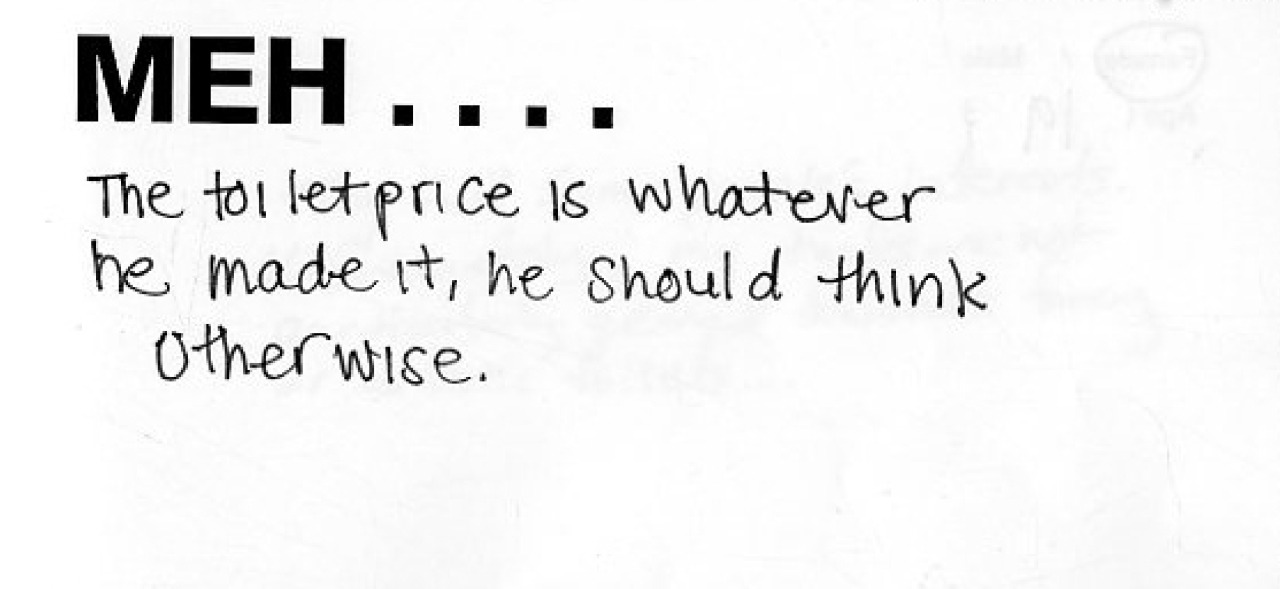 MEH....
The toilet price is whatever
he made it, he should think
otherwise.